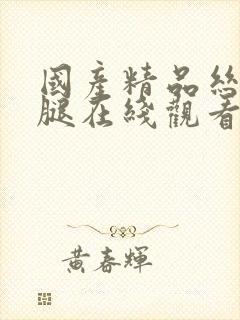 國產精品絲
腿在綫觀看
黃春輝